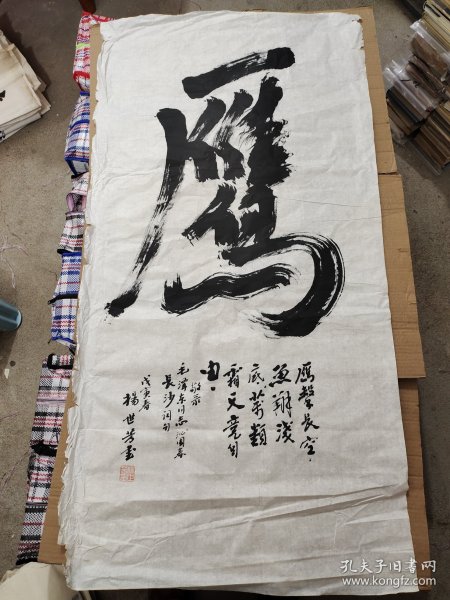 鹰
鹰击长空，
鱼翔浅
底，万类
霜天竞自
由。
敬录
毛泽东同志沁园春
长沙词句
戊寅春
杨世芳书
孔夫子旧书网
www.kongfz.com